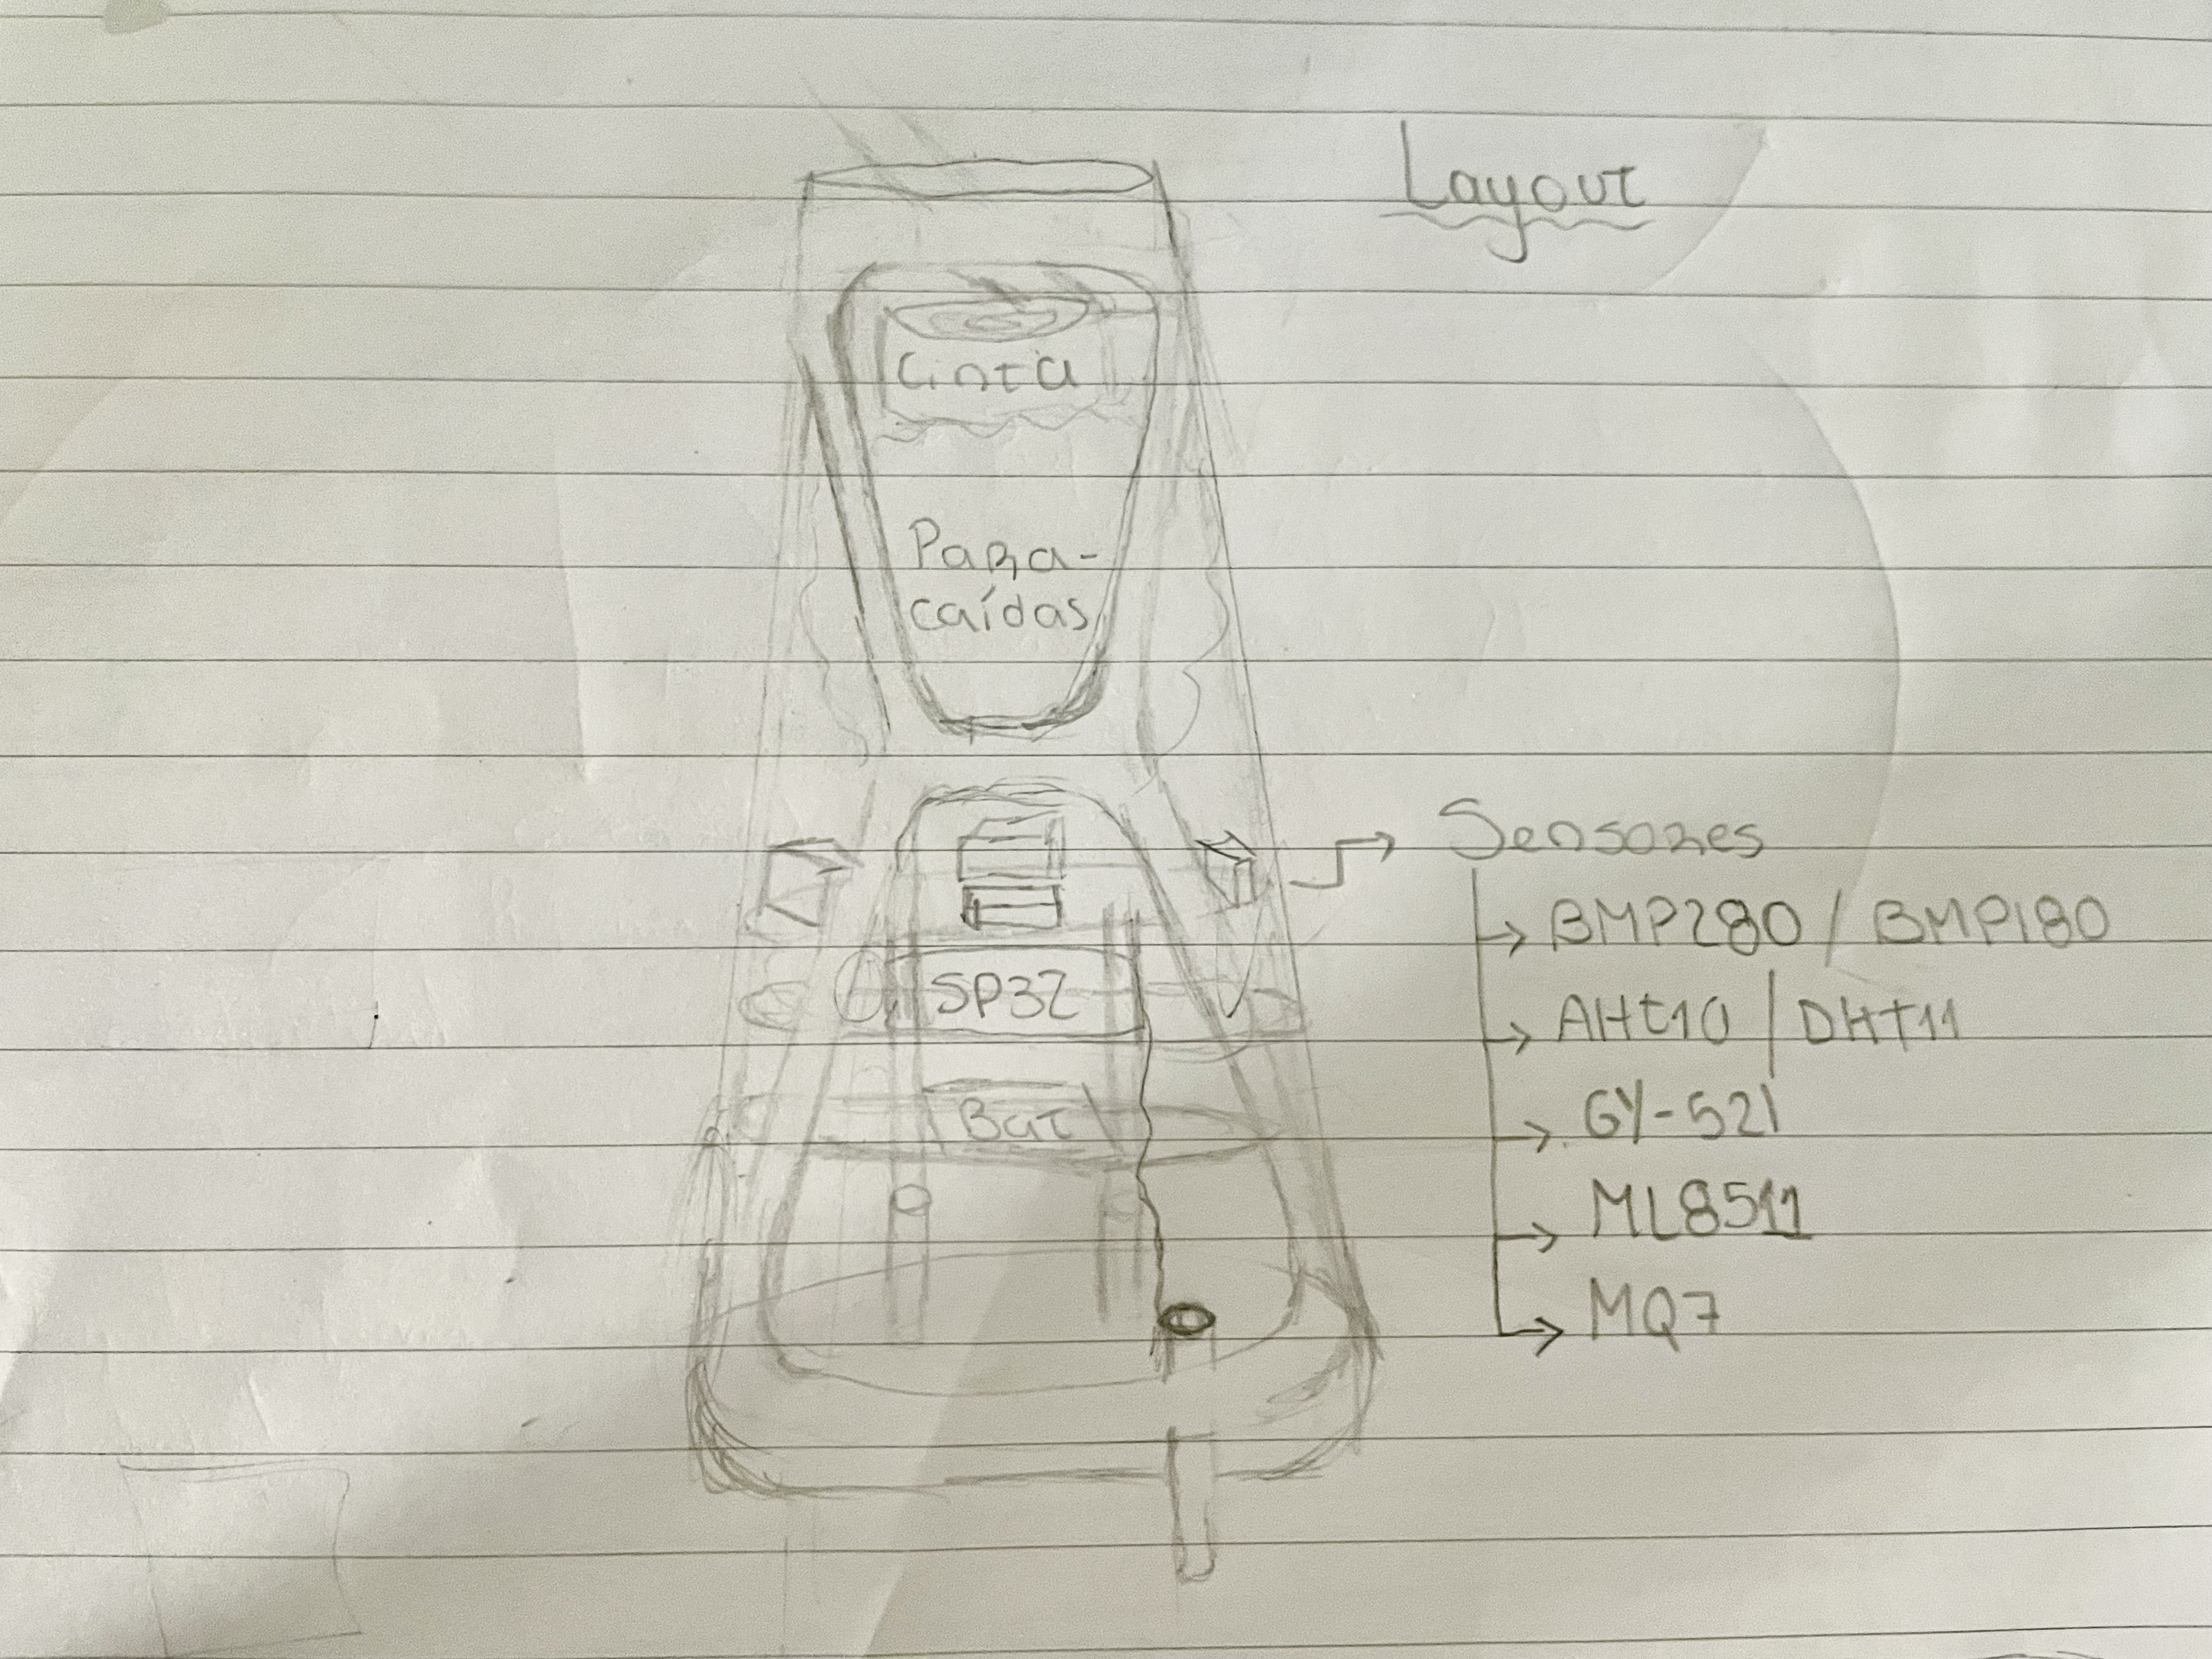 Layout
Cinta
Para-
caídas
Sensores
BMP280 / BMP180
AHt10 / DHt11
GY-521
ML8511
MQ7
SP32
Bat